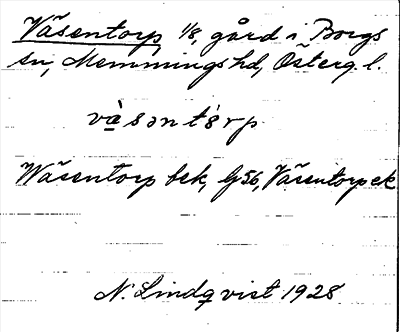 Väsentorp 1/8, gård i Borgs
sn, Memmings hd, Österg. l.
väsəntórp
Wäsentorp bek, G 56, Väsentorp ek
N. Lindqvist 1928